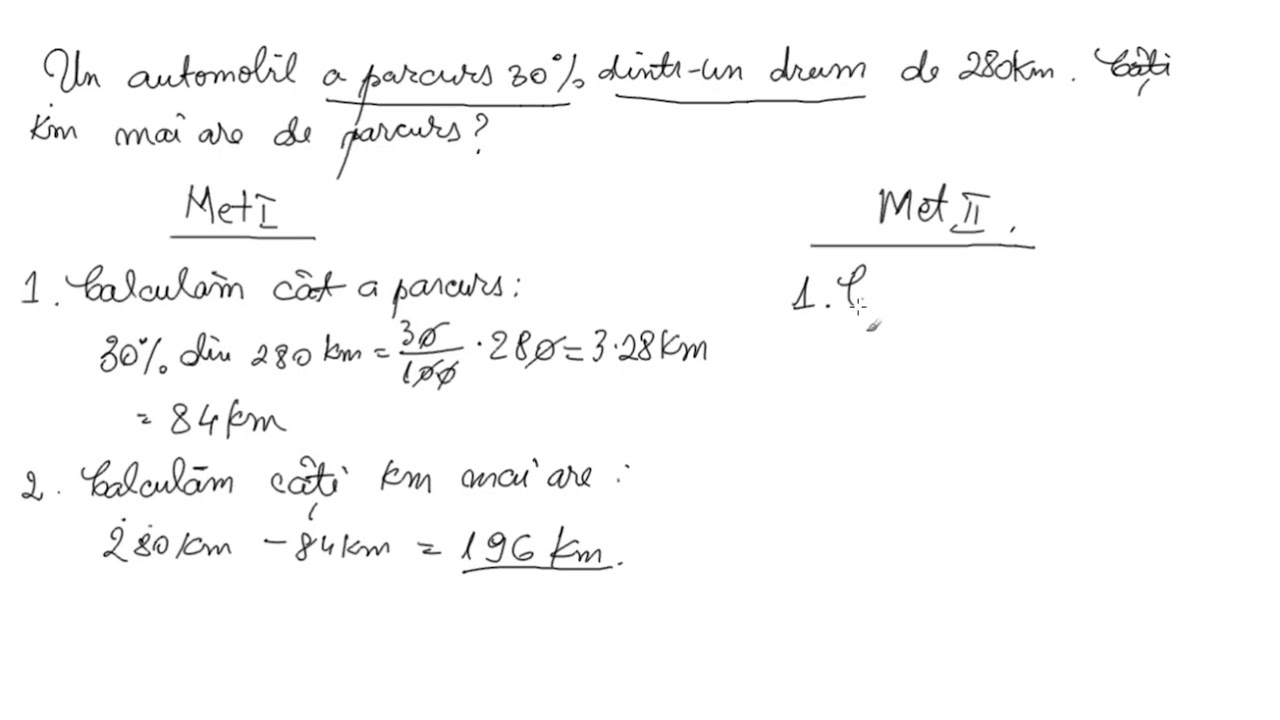 Un automobil a parcurs 30% dintr-un drum de 280km. Câți
km mai are de parcurs?
Met I
1. Calculăm cât a parcurs:
30% din 280 km = 30/100 · 280 = 3·28km
= 84km
2. Calculăm câți km mai are:
280km - 84km = 196 km.
Met II.
1. C